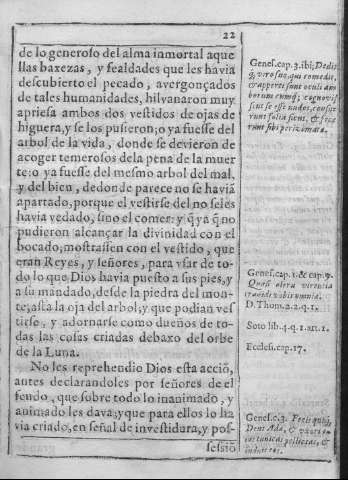 22
de lo generoso del alma inmortal aque
llas baxezas, y fealdades que les havia
descubierto el pecado, avergonçados
de tales humanidades, hilvanaron muy
apriesa ambos dos vestidos de ojas de
higuera, y se los pusieron; o ya fuesse del
arbol de la vida, donde se devieron de
acoger temerosos de la pena de la muer
te: o ya fuesse del mesmo arbol del mal,
y del bien, de donde parece no se haviã
apartado, porque el vestirse del no seles
havia vedado, sino el comer: y q̃ ya q̃ no
pudieron alcançar la divinidad con el
bocado, mostrassen con el vestido, que
eran Reyes, y señores, para vsar de to-
do lo que Dios havia puesto a sus pies, y
a su mandado, desde la piedra del mon-
te, asta la oja del arbol, y que podian ves
tirse, y adornarse como dueños de to-
das las cosas criadas debaxo del orbe
de la Luna.
No les reprehendio Dios esta acciõ,
antes declarandoles por señores de el
feudo, que sobre todo lo inanimado, y
animado les dava; y que para ellos lo ha
via criado, en señal de investidura, y pos-
sessiõ
Genes. cap. 3. ibi; Dedit
q; viro suo, qui comedit,
& aperti sunt oculi am
borum cumq; cognovis
sent se esse nudos, consue
runt folia ficus, & fece
runt sibi perizomata.
Genes. cap. 1. & cap. 9.
Quasi olera virentia
tradidi vobis omnia.
D. Thom. 2. 2. q. 1.
Soto lib. 4. q. 1. art. 1.
Eccles. cap. 17.
Genes. c. 3. Fecit quoq;
Deus Adæ, & uxori
eius tunicas pelliceas, &
induit eos.